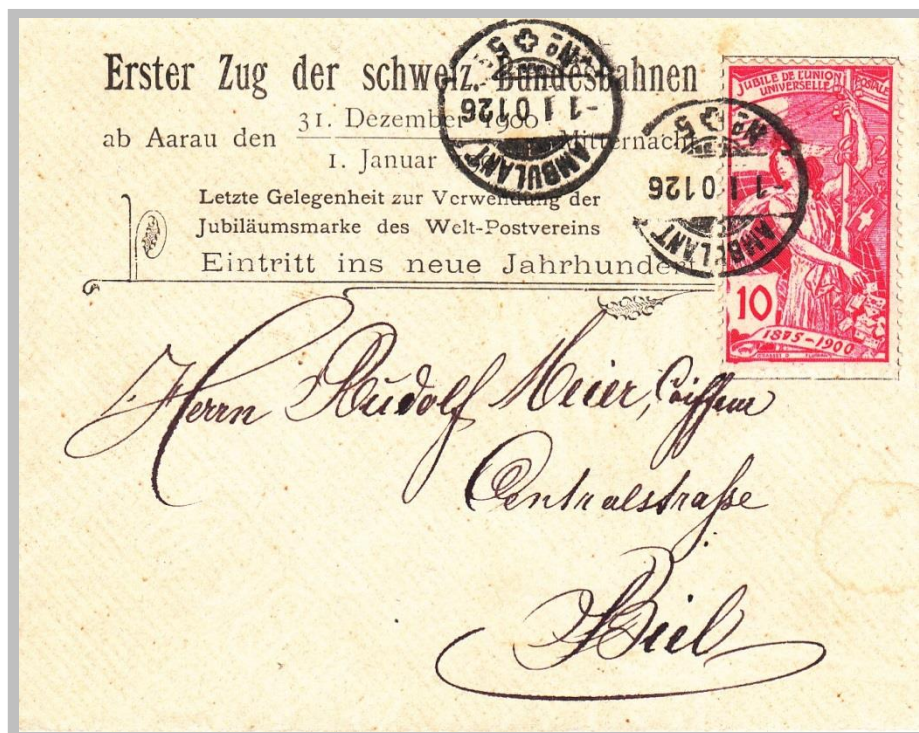 Erster Zug der schweiz. Bundesbahnen
ab Aarau den 31. Dezember 1900 Mitternacht
1. Januar
Letzte Gelegenheit zur Verwendung der
Jubiläumsmarke des Welt-Postvereins
Eintritt ins neue Jahrhundert
AMBULANT
-1 I 01 26
No 5
AMBULANT
-1 I 01 26
No 5
JUBILE DE L'UNION POSTALE
UNIVERSELLE
10
1875-1900
Herrn Rudolf Meier, Coiffeur
Centralstraße
Biel